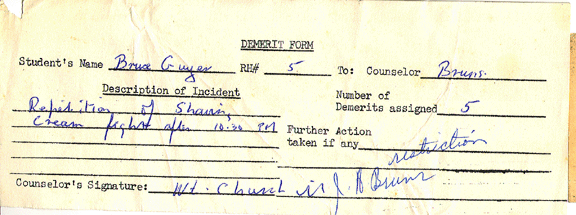 DEMERIT FORM
Student's Name Bruce Guyer RH# 5 To: Counselor Bruns
Description of Incident
Repetition of Shaving
Cream fight after 10:30 PM
Number of
Demerits assigned 5
Further Action
taken if any restriction
Counselor's Signature: Wt. Church J. A Bruns